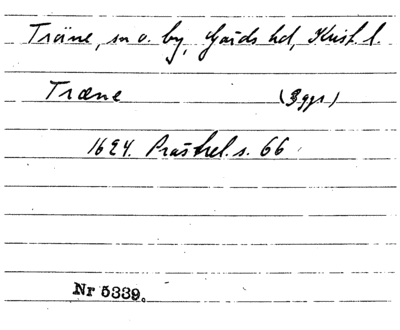 Träne, sn o. by, Gärds hd, Krist. l.
Træne (3ggr)
1624. Prästrel. s. 66
Nr 5339.